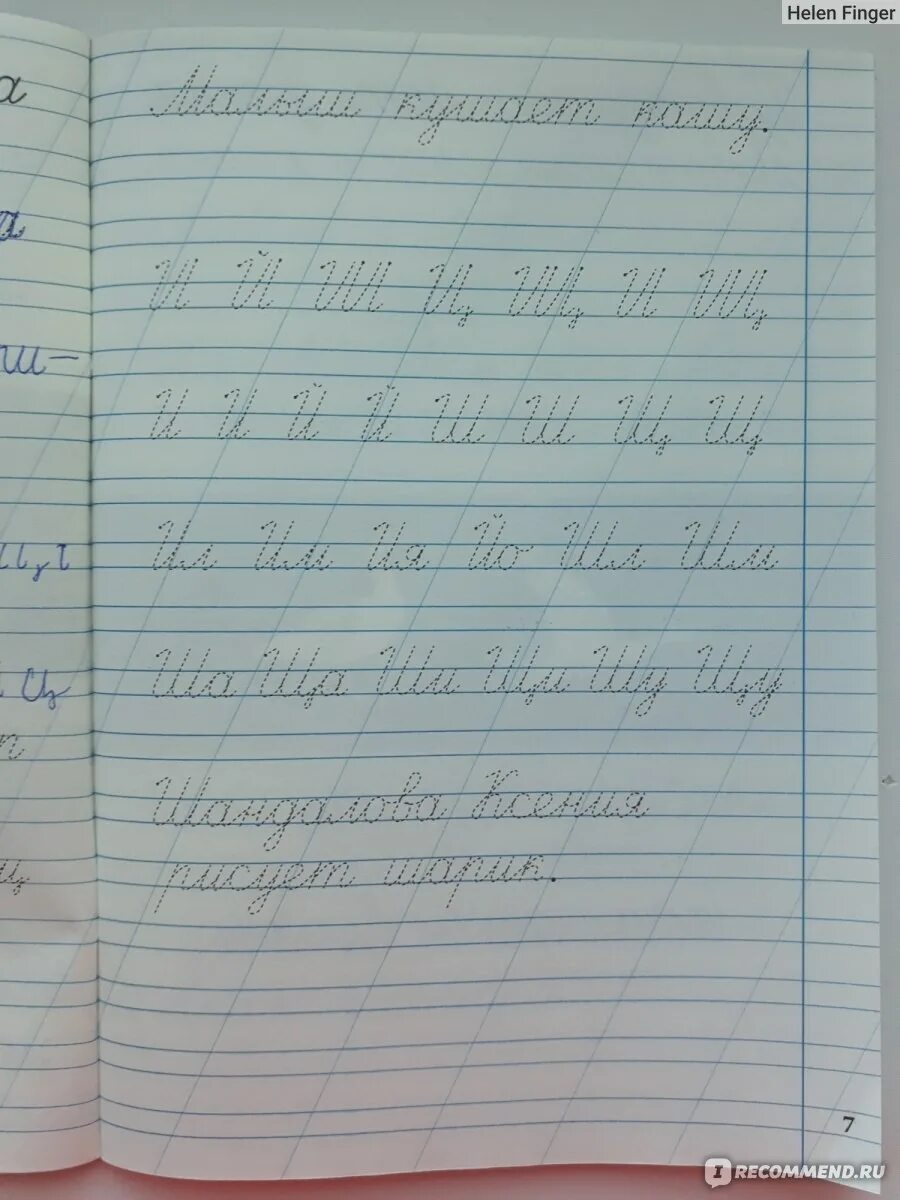 Helen Finger
а
Малыш кушает кашу.
а
И Й Ш Ц Щ И Щ
ш-
И И Й Й Ш Ш Щ Щ
Ил Им Ия Йо Шл Шм
Ша Ща Ши Щи Шу Щу
ц
Шандалова Ксения
рисует шарик.
7
IRECOMMEND.RU